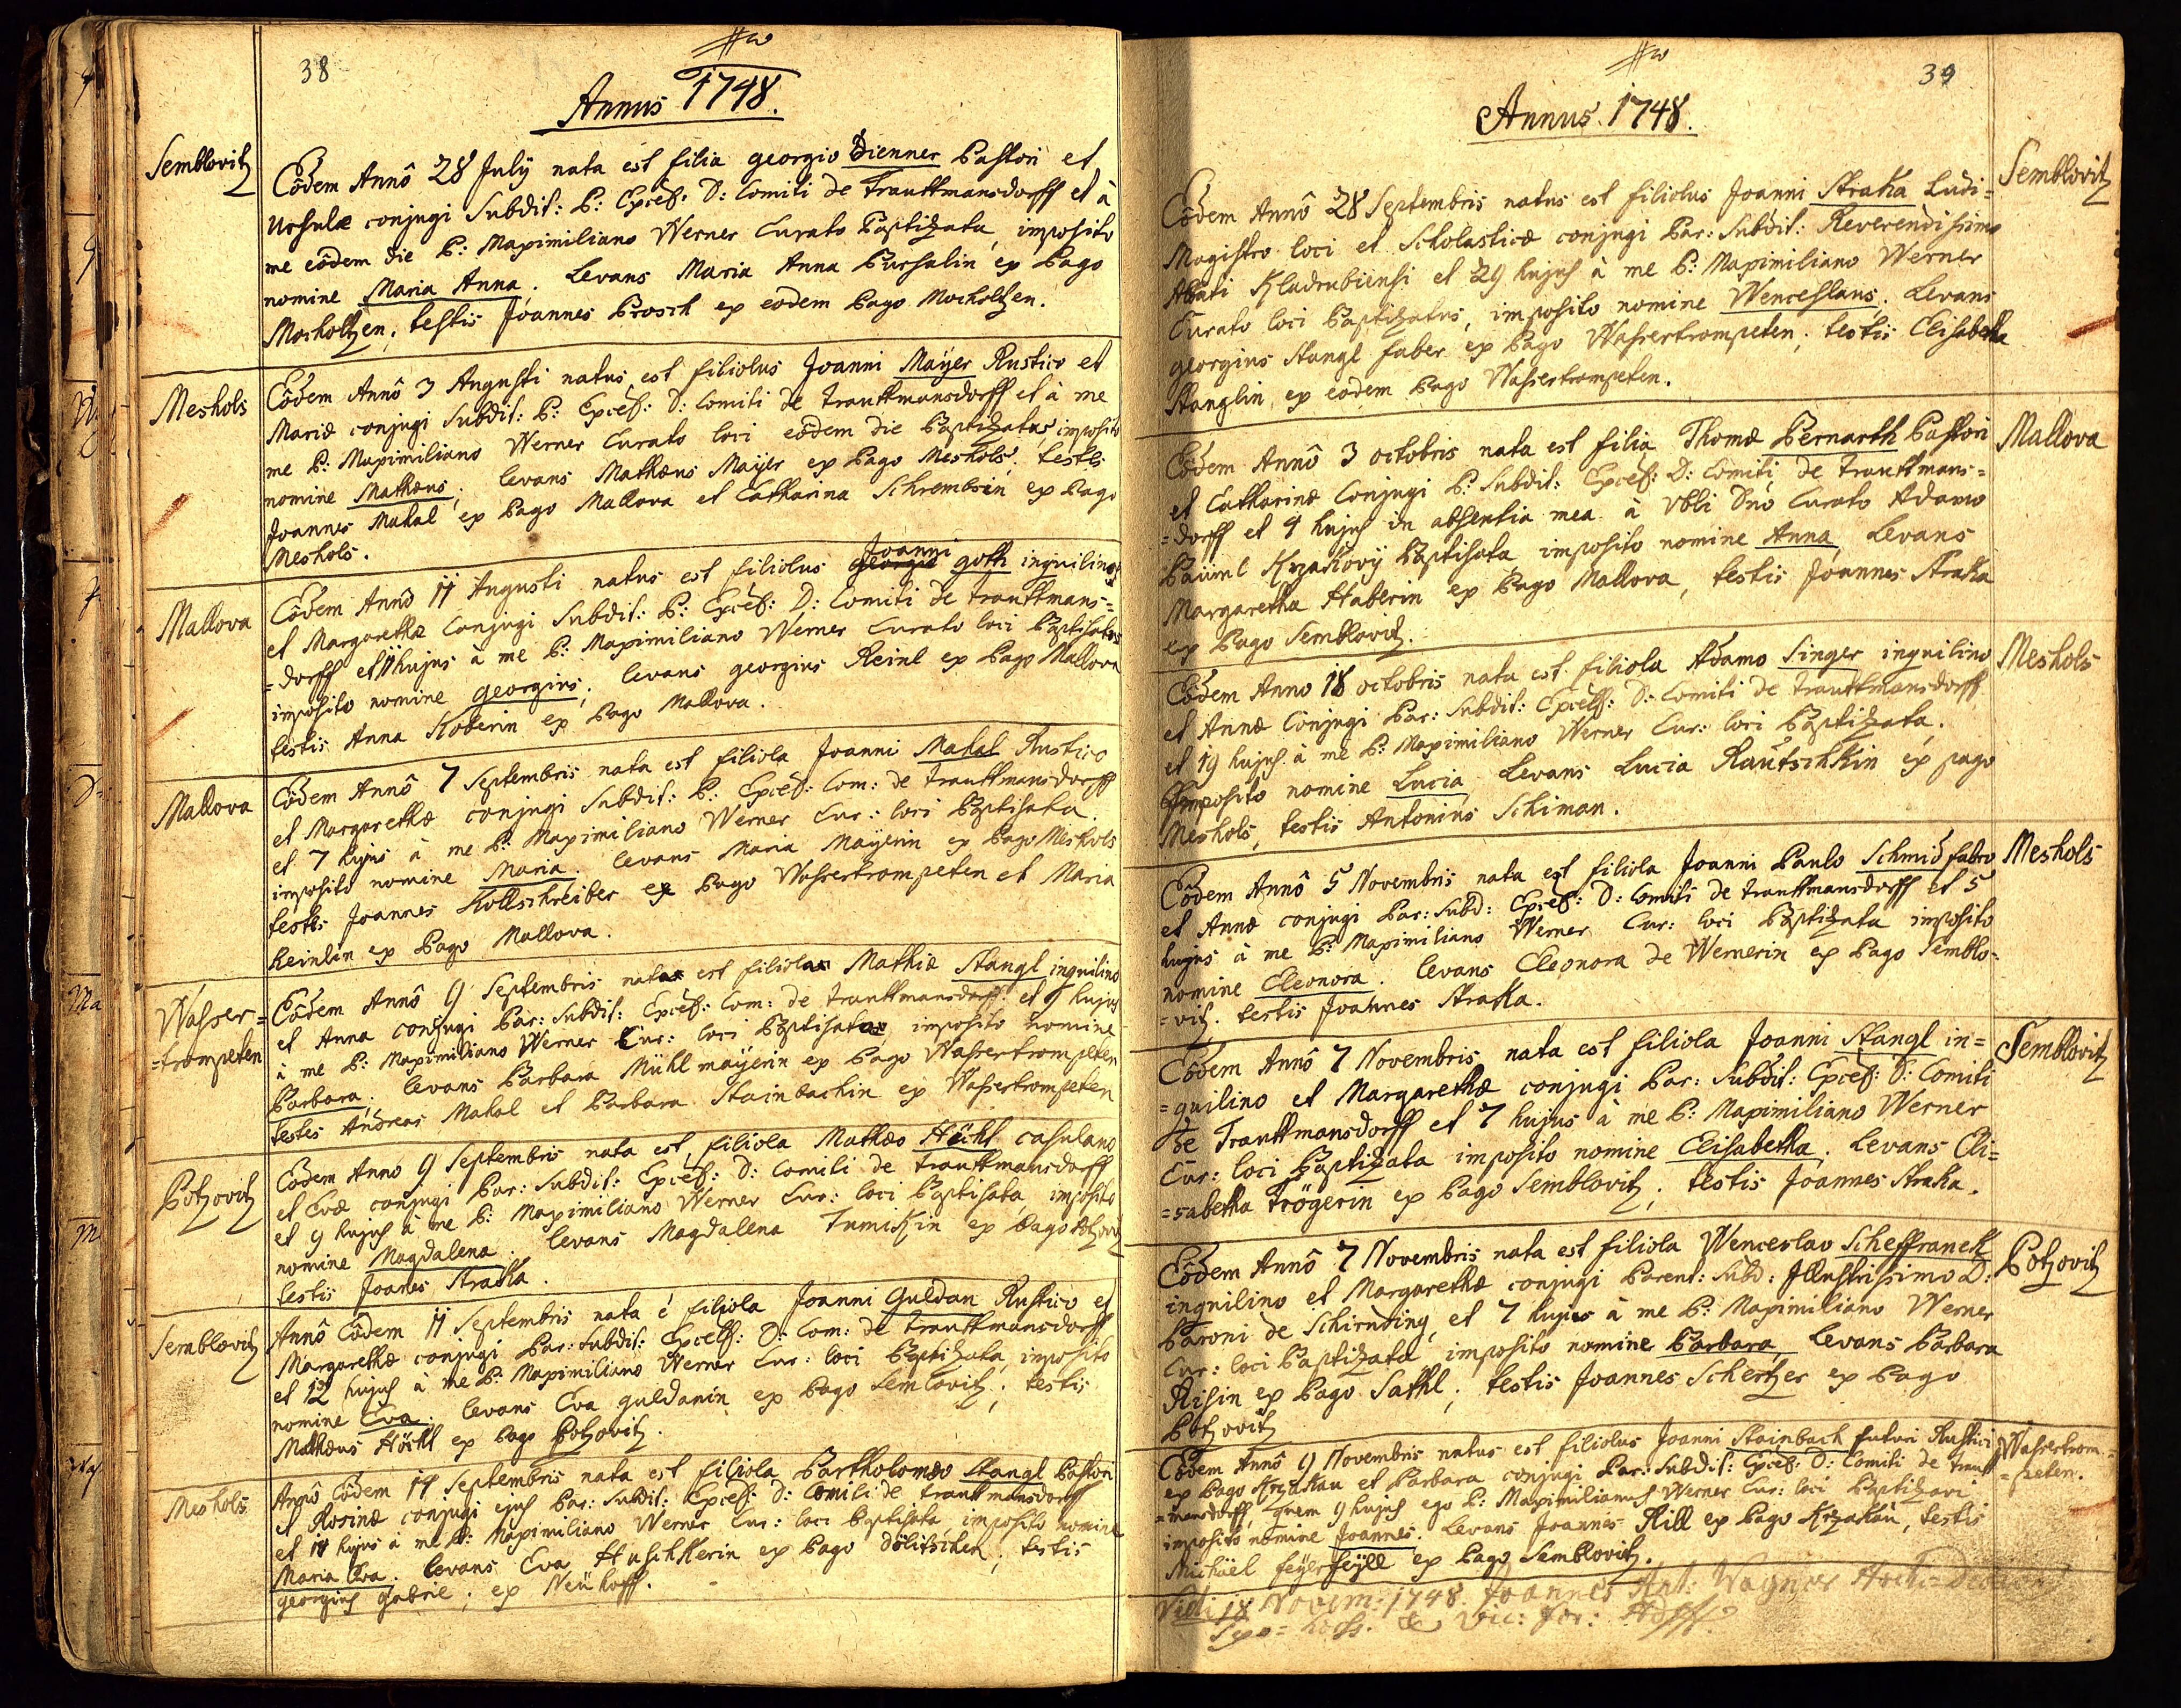 38
Annus 1748.
Semblovitz
Eôdem Annô 28 July nata est filia georgio Dienner Pastori et
Ursulæ conjugi Subdit: P: Excel: D: Comiti de Trauttmansdorff et à
me eôdem die P: Maximiliano Werner Curato Baptizata, imposito
nomine Maria Anna. Levans Maria Anna Purschalin ex Pago
Mocholtzen, testis Joannes Prosch ex eodem Pago Mocholtzen.
Meshols
Eôdem Annô 3 Augusti natus est filiolus Joanni Mayer Rustico et
Mariæ conjugi Subdit: P: Excel: D: Comiti de Trauttmansdorff et à me
me P: Maximiliano Werner Curato loci eôdem die Baptizatus, imposito
nomine Mathæus; levans Mathæus Mayer ex Pago Meshols, testes
Joannes Makal ex Pago Mallova et Catharina Schrembsin ex Pago
Meshols.
Mallova
Joanni
Eôdem Annô 11 Augusti natus est filiolus georgio goth inquilino
et Margarethæ Conjugi Subdit: P: Excel: D: Comiti de Trauttmans=
=dorff et 11 hujus à me P: Maximiliano Werner Curato loci Baptisatus
imposito nomine georgius; levans georgius Reinl ex Pago Mallova
testis Anna Koberin ex Pago Mallova.
Mallova
Eôdem Annô 7 Septembris nata est filiola Joanni Makal Rustico
et Margarethæ conjugi Subdit: P: Excel: Com: de Trauttmansdorff
et 7 hujus à me P: Maximiliano Werner Cur: loci Baptisata.
imposito nomine Maria. levans Maria Mayerin ex Pago Meshols
testes Joannes Kollschreiber ex Pago Wassertrompeten et Maria
Reinlin ex Pago Mallova.
Wasser=
=trompeten
Eôdem Annô 9 Septembris nata est filiola Mathiæ Stangl inquilino
et Anna conjugi Par: Subdit: Excel: Com: de Trauttmansdorff et 9 hujus
à me P: Maximiliano Werner Cur: loci Baptisata, imposito nomine
Barbara; levans Barbara Mühlmayerin ex Pago Wassertrompeten
testes Andreas Makal et Barbara Stainbachin ex Wassertrompeten
Potzovitz
Eodem Anno 9 Septembris nata est filiola Mathæo Höckl casulano
et Evæ conjugi Par: Subdit: Excel: D: Comiti de Trauttmansdorff
et 9 hujus à me P: Maximiliano Werner Cur: loci Baptisata, imposito
nomine Magdalena. levans Magdalena Tumikin ex Pago Potzovitz
testis Joanes Straka.
Semblovitz
Annô Eôdem 11 Septembris nata é filiola Joanni Guldan Rustico et
Margarethæ conjugi Par: Subdit: Excell: D: Com: de Trauttmansdorff
et 12 hujus à me P: Maximiliano Werner Cur: loci Baptizata, imposito
nomine Eva. levans Eva guldanin ex Pago Semlovitz; testis
Mathæus Höckl ex Pago Potzovitz.
Meshols
Annô Eôdem 14 Septembris nata est filiola Bartholomæo Stangl Pastori
et Rosinæ conjugi ejus Par: Subdit: Excel: D: Comiti de Trauttmansdorff
et 14 hujus à me P: Maximiliano Werner Cur: loci Baptisata, imposito nomine
Maria Eva. levans Eva Huschkerin ex Pago dölitschen; testis
georgius gabriel; ex Neühoff.
39
Annus 1748.
Semblovitz
Eôdem Annô 28 Septembris natus est filiolus Joanni Straka Ludi=
Magistro loci et Scholasticæ conjugi Par: Subdit: Reverendissimo
Abbati Kladrubiensi et 29 hujus à me P: Maximiliano Werner
Curato loci Baptizatus, imposito nomine Wenceslaus. Levans
georgius Stangl faber ex Pago Wassertrompeten; testis Elisabetha
Stanglin ex eodem Pago Wassertrompeten.
Mallova
Eôdem Annô 3 octobris nata est filia Thomæ Bernarth Pastori
et Catharinæ Conjugi P: Subdit: Excel: D: Comiti de Trauttmans=
=dorff et 4 hujus in absentia mea à Vbli Dno Curato Adamo
Päuml Krzakovÿ Baptisata imposito nomine Anna, Levans
Margaretha Haberin ex Pago Mallova, testis Joannes Straka
ex Pago Semblovitz.
Meshols
Eôdem Anno 18 octobris nata est filiola Adamo Singer inquilino
et Annæ Conjugi Par: Subdit: Excell: D: Comiti de Trauttmansdorff
et 19 hujus à me P: Maximiliano Werner Cur: loci Baptizata.
imposito nomine Lucia Levans Lucia Rautschkin ex pago
Meshols, testis Antonius Schiman.
Meshols
Eôdem Annô 5 Novembris nata est filiola Joanni Paulo Schmid fabro
et Annæ conjugi Par: Subd: Excel: D: Comiti de Trauttmansdorff et 5
hujus à me P: Maximiliano Werner Cur: loci Baptizata imposito
nomine Eleonora. levans Eleonora de Wernerin ex Pago Semblo=
=vitz. testis Joannes Straka.
Semblovitz
Eôdem Annô 7 Novembris nata est filiola Joanni Stangl in=
=quilino et Margarethæ conjugi Par: Subdit: Excel: D: Comiti
de Trauttmansdorff et 7 hujus à me P: Maximiliano Werner
Cur: loci Baptizata imposito nomine Elisabetha. Levans Eli=
=sabetha Trögerin ex Pago Semblovitz; testis Joannes Straka.
Potzovitz
Eôdem Annô 7 Novembris nata est filiola Wenceslao Scheffranek
inquilino et Margarethæ conjugi Parent: Subd: Illustrissimo D:
Baroni de Schirnding, et 7 hujus à me P: Maximiliano Werner
Cur: loci Baptizata imposito nomine Barbara, Levans Barbara
Risin ex Pago Sathl; testis Joannes Schertzer ex Pago
Potzovitz
Wassertrom=
=peten.
Eôdem Annô 9 Novembris natus est filiolus Joanni Stainbach futuri Rustici
ex Pago Krzakau et Barbara conjugi Par: Subdit: Excel: D: Comiti de Traut=
=mansdorff, quem 9 hujus ego P: Maximilianus Werner Cur: loci Baptizavi
imposito nomine Joannes. Levans Joannes Rill ex Pago Krzakau, testis
Michael feyl ex Pago Semblovitz.
Vidi 18 Novem: 1748. Joannes Ant: Wagner
Vic: For: